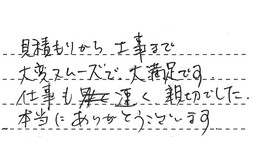 見積もりから 工事まで
大変スムーズで、大満足です。
仕事も 速く 親切でした。
本当にありがとうございます